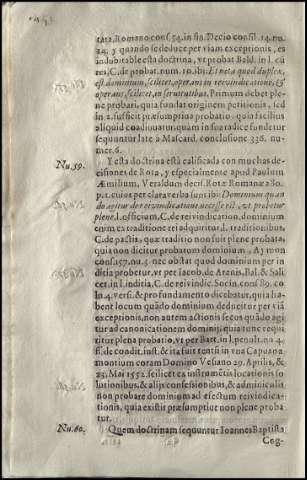 tata, Romano conf. 54. in fin. Decio consil. 14. nu.
24. y quando se deduce per viam exceptionis, es
indubitable esta doctrina, vt probat Bald. in l. cũ
res, C. de probat. num. 10. ibi: Et nota quod duplex,
est dominium, scilicet, operans in reivindicatione, &
operans, scilicet, in servitutibus. Primum debet ple-
ne probari, quia fundat originem petitionis, sed
in 2. sufficit præsumptiva probatio, quia facilius
aliquid coadiuuatur, quam in sua radice fundetur
sequuntur late a Mascard. conclusione 536. nu-
mer. 6.
Nu. 59. Y esta doctrina està calificada con muchas de-
cisiones de Rota, y especialmente apud Paulum
Æmilium, Veraldum decis. Rotæ Romanæ
cuius per clara verba sunt ibi: Dominium quan
do agitur de reivindicatione necesse est, vt probetur
plene, l. officium, C. de reivindication. dominium
enim ex traditione tei adquiritur, l. traditionibus,
C. de pactis, quæ traditio non fuit plene probata,
quia non dicitur probatum dominium, Aymon
conf. 157. nu. 3. nec obstat quod dominium per in
ditia probetur, vt per Iacob. de Arenis, Bal. & Sali
cet. in l. inditia, C. de reivindic. Socin. conf. 80. co
ln. 4. vers. & pro fundamento dicebatur, quia ha-
bent locum quãdo dominium deducitur per viã
exceptionis, non autem actionis secus quãdo agi
tur ad canonicationem dominij, quia tunc requi
ritur plena probatio, vt per Batt. in l. penult. nu. 4.
ff. de condit. inst. & ita fuit tentũ in vna Capuana
montium coram Domino Vesano 29. Aprilis, &
23. Maij 1552. scilicet ex instrumẽtis locationis so
lutionibus, & alijs confessionibus, & adminiculis
non probare dominium ad effectum reivindica-
tionis, quia existit præsumptiuè non plene proba
tur.
Nu. 60. Quem doctrinam sequuntur Ioannes Baptista
Cog-